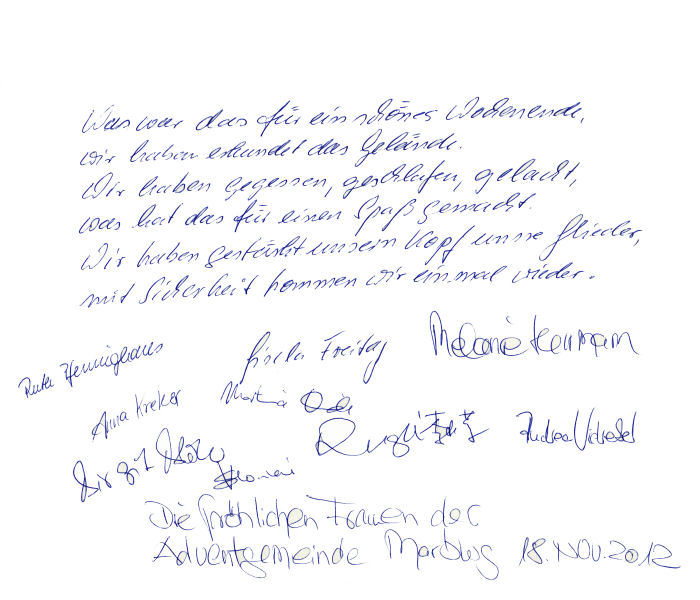 Was war das für ein schönes Wochenende,
wir haben erkundet das Gelände.
Wir haben gegessen, geschlafen, gelacht,
was hat das für einen Spaß gemacht.
Wir haben gestärkt unsern Kopf unsre Glieder,
mit Sicherheit kommen wir einmal wieder.
Gisela Freitag
Anna Kreker Martina
Birgit
Andrea
Die fröhlichen Frauen der
Adventgemeinde Marburg 18. Nov. 2012